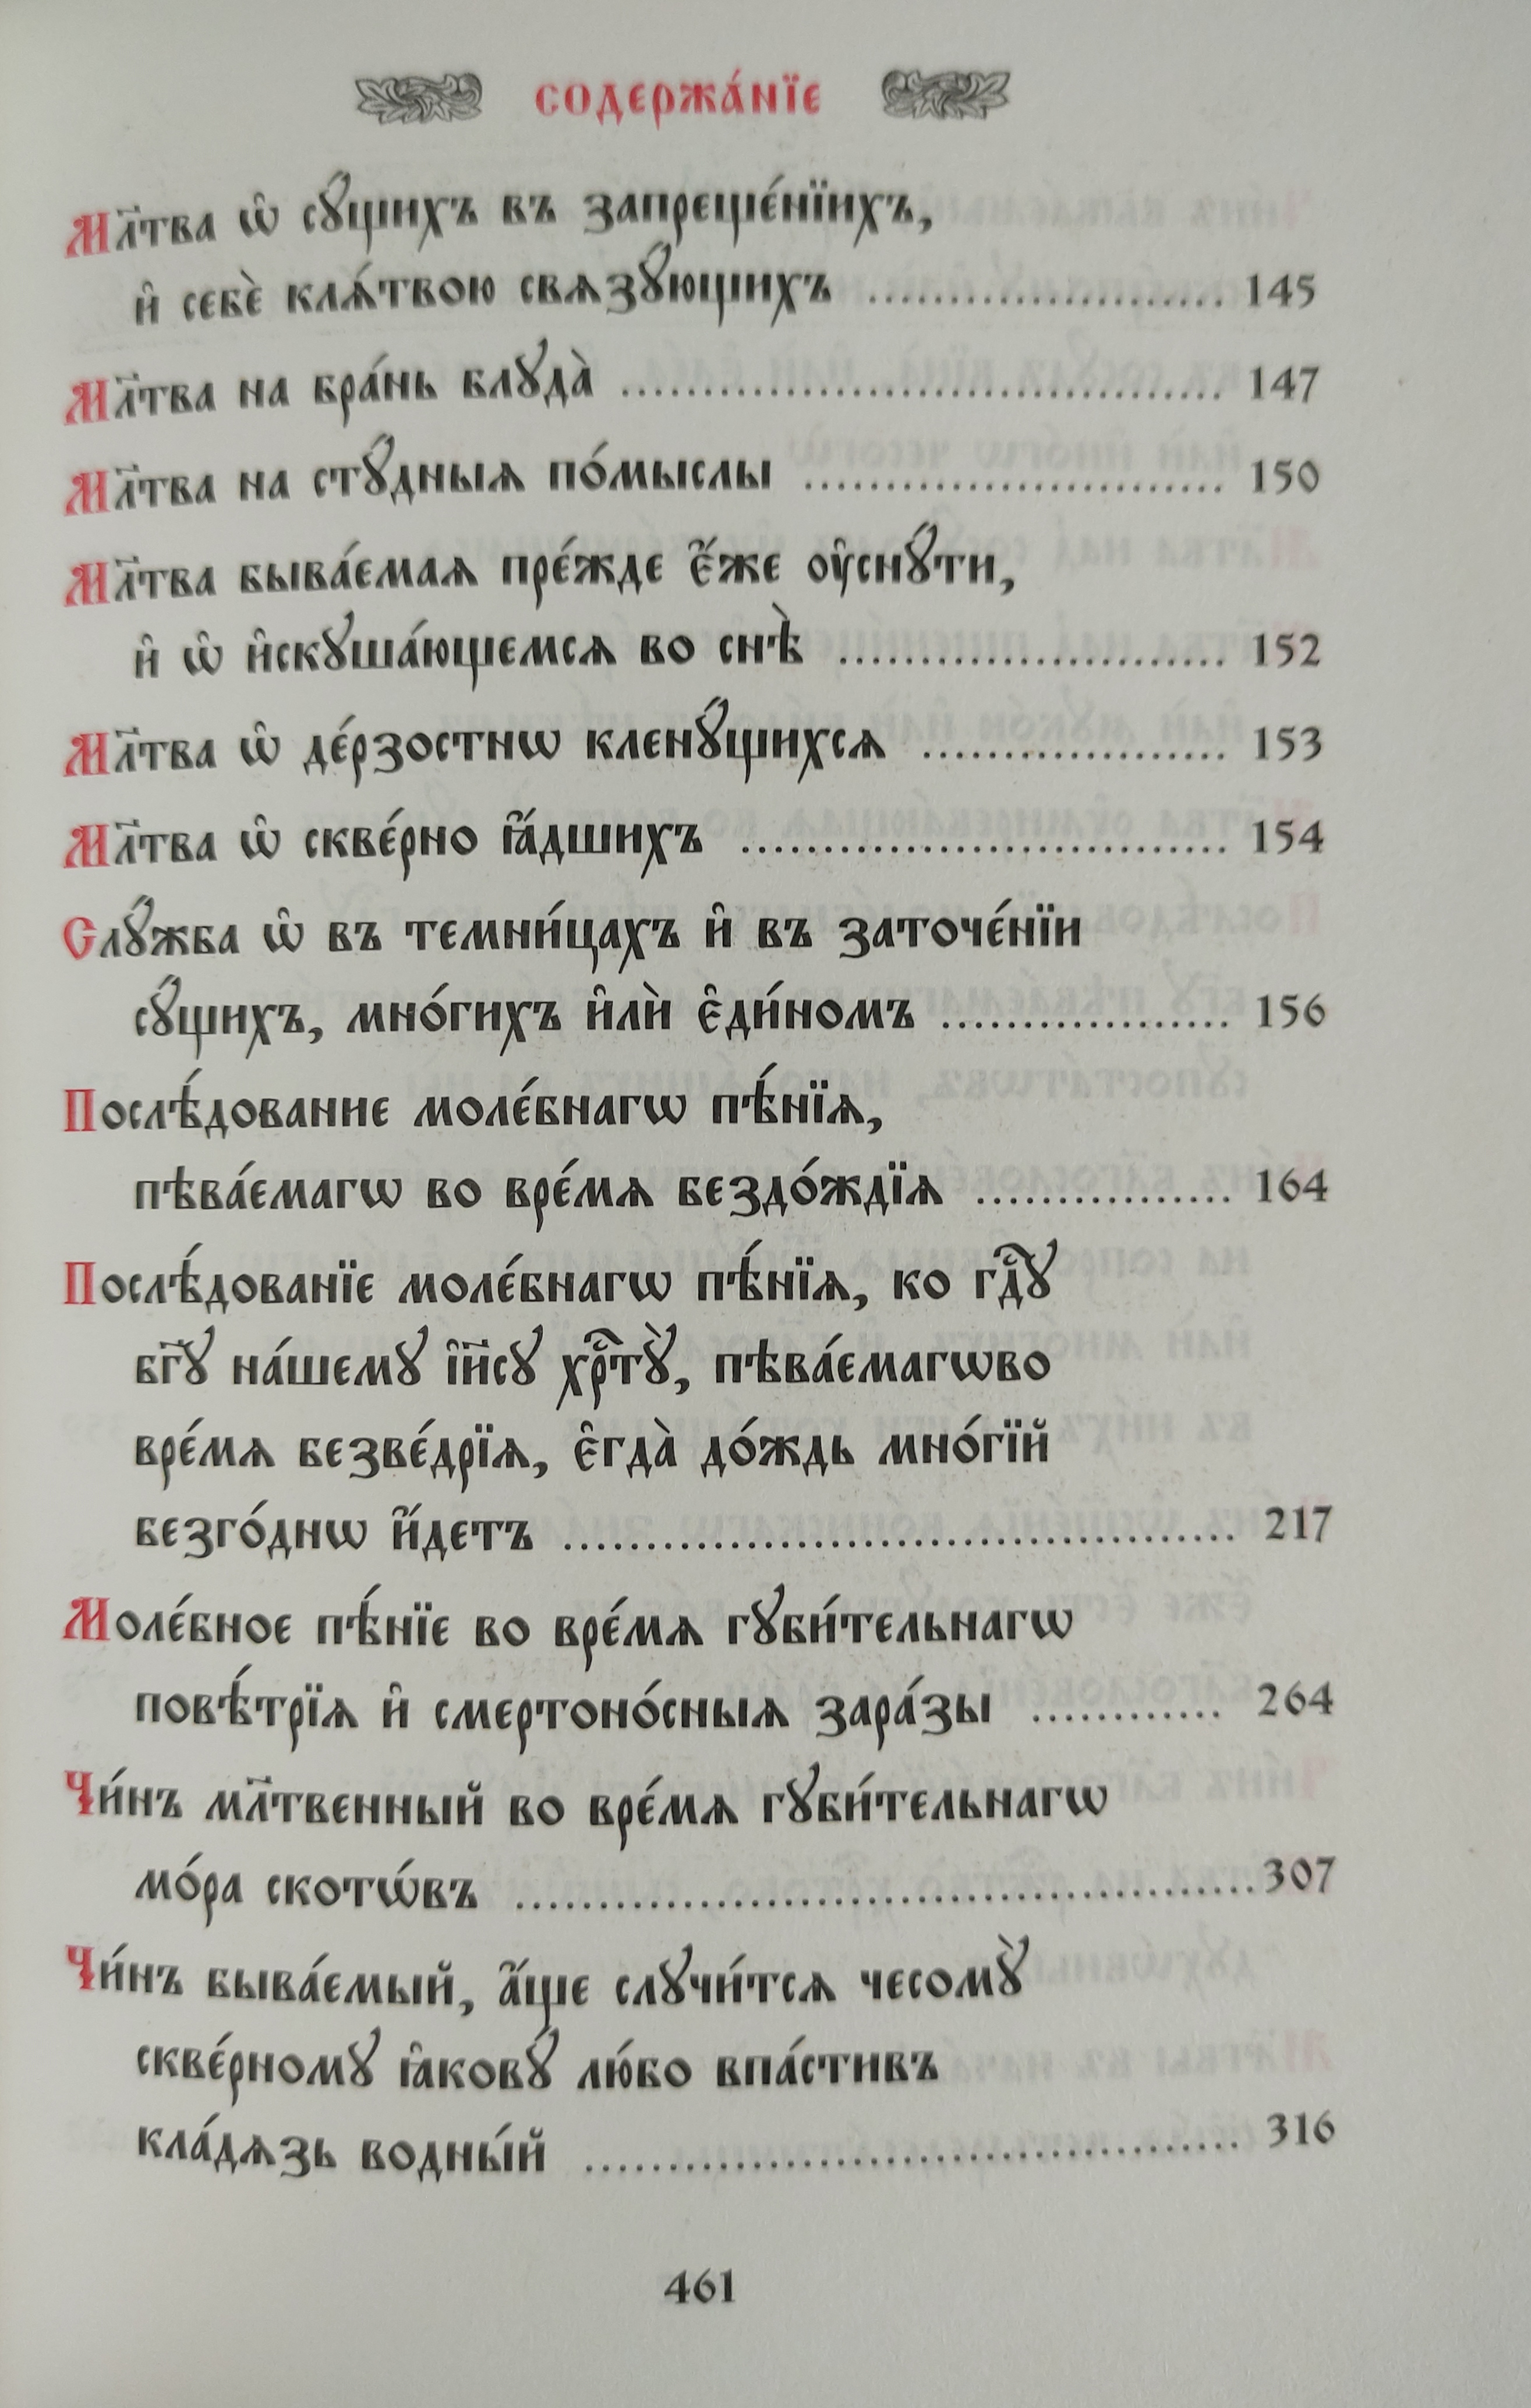 содержа́нїе
Мл҃тва ѡ҆ сꙋ́щихъ въ запреще́нїихъ,
и҆ себѐ кла́твою свѧзꙋ́ющихъ ...................... 145
Мл҃тва на бра́нь блꙋда̀ ..................................... 147
Мл҃тва на стꙋ́дныѧ по́мыслы .......................... 150
Мл҃тва быва́емаѧ пре́жде є҆́же ᲂу҆снꙋ́ти,
и҆ ѡ҆ и҆скꙋша́ющемсѧ во снѣ̀ ........................ 152
Мл҃тва ѡ҆ де́рзостнѡ кленꙋ́щихсѧ ................... 153
Мл҃тва ѡ҆ скве́рно ꙗ҆́дшихъ .............................. 154
Слꙋ́жба ѡ҆ въ темни́цахъ и҆ въ заточе́нїи
сꙋ́щихъ, мно́гихъ и҆лѝ є҆ди́номъ .................. 156
Послѣ́дование моле́бнагѡ пѣ́нїѧ,
пѣва́емагѡ во вре́мѧ бездо́ждїѧ ................ 164
Послѣ́дованїе моле́бнагѡ пѣ́нїѧ, ко гдⷭ҇ꙋ
бг҃ꙋ на́шемꙋ і҆и҃сꙋ хрⷭ҇тꙋ̀, пѣва́емагѡво
вре́мѧ безве́дрїѧ, є҆гда̀ до́ждь мно́гїй
безго́днѡ и҆́детъ ......................................... 217
Моле́бное пѣ́нїе во вре́мѧ гꙋби́тельнагѡ
повѣ́трїѧ и҆ смертоно́сныѧ зара́зы ............ 264
Чи́нъ мл҃твенный во вре́мѧ гꙋби́тельнагѡ
мо́ра скотѡ́въ .............................................307
Чи́нъ быва́емый, а҆́ще слꙋчи́тсѧ чесомꙋ̀
скве́рномꙋ ꙗ҆ковꙋ́ лю́бо впа́стивъ
кла́дѧзь водны́й ........................................ 316
461